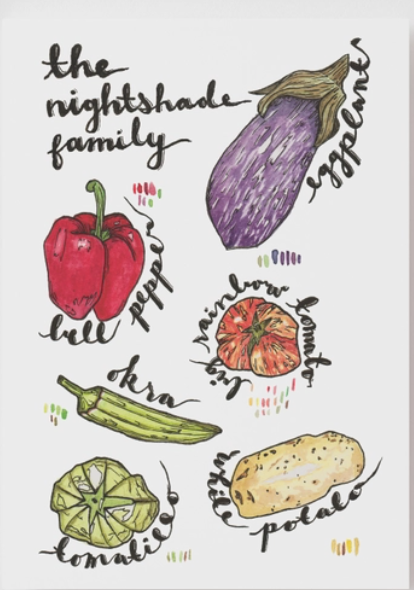 the
nightshade
family
eggplant
bell pepper
big rainbow tomato
okra
white potato
tomatillo